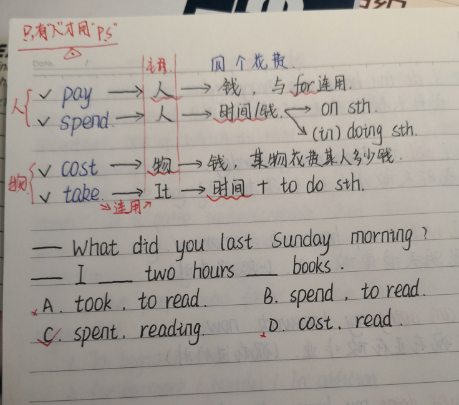 只有"人"才用"P.S"
Date.
主语 四个花费
人 { ✓ pay → 人 → 钱，与for连用.
✓ spend → 人 → 时间/钱 → on sth.
↘ (in) doing sth.
物 { ✓ cost → 物 → 钱，某物花费某人多少钱.
✓ take → It → 时间 + to do sth.
连用
— What did you last Sunday morning?
— I ___ two hours ___ books.
A. took, to read. B. spend, to read.
C. spent, reading. D. cost, read.